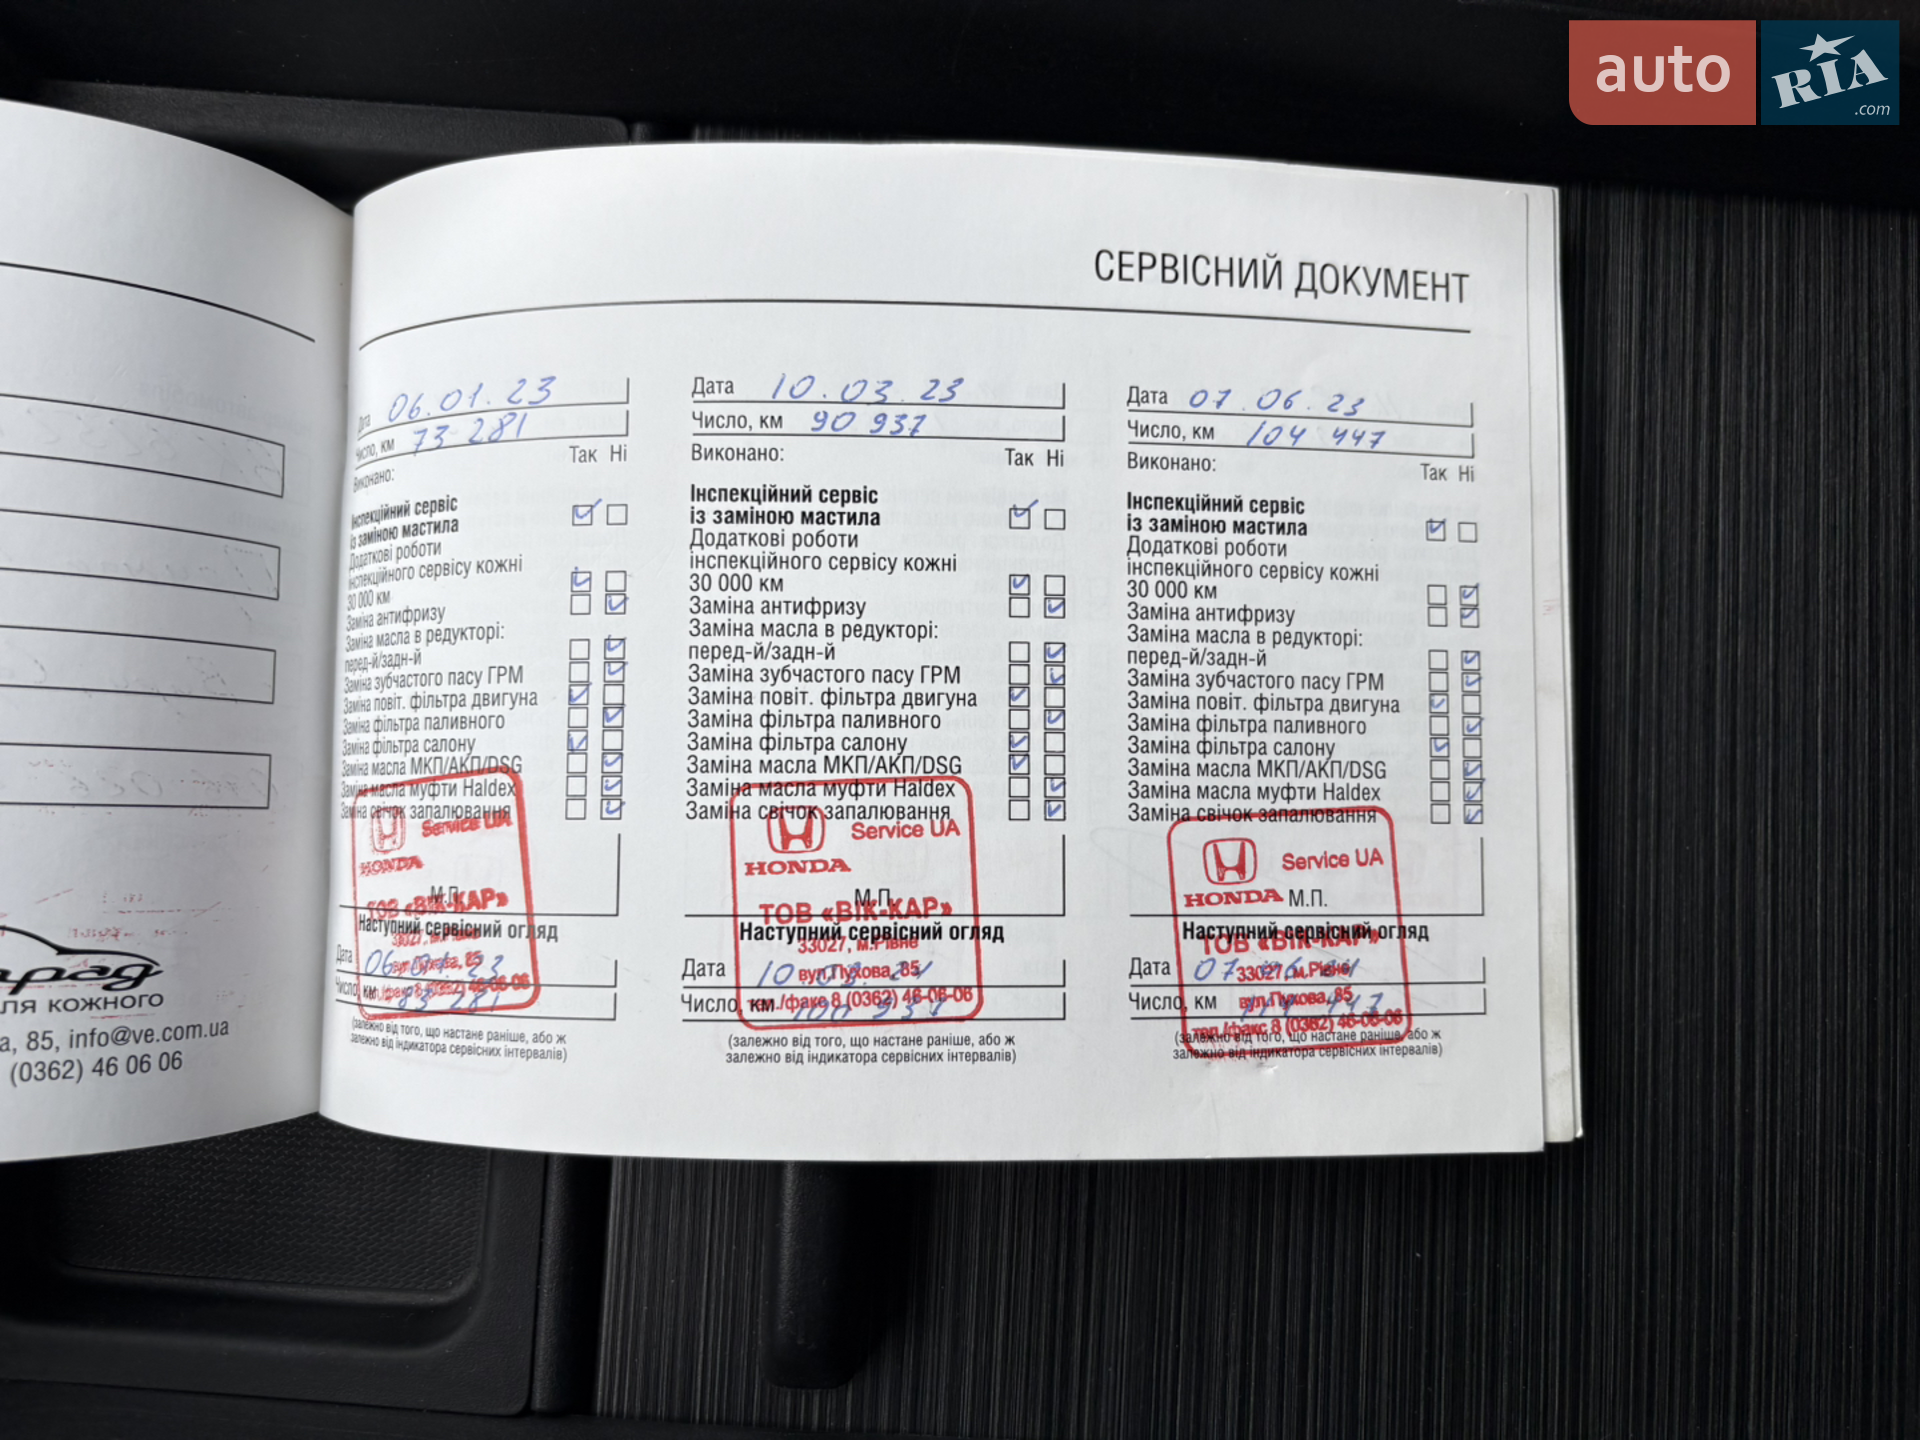 auto RIA.com
СЕРВІСНИЙ ДОКУМЕНТ
Дата 06.01.23
Число, км 73 281
Виконано:
Так Ні
Інспекційний сервіс
із заміною мастила
Додаткові роботи
інспекційного сервісу кожні
30 000 км
Заміна антифризу
Заміна масла в редукторі:
перед-й/задн-й
Заміна зубчастого пасу ГРМ
Заміна повіт. фільтра двигуна
Заміна фільтра паливного
Заміна фільтра салону
Заміна масла МКП/АКП/DSG
Заміна масла муфти Haldex
Заміна свічок запалювання
Service UA
HONDA
М.П.
ТОВ «ВІК-КАР»
Наступний сервісний огляд
33027, м.Рівне
вул.Пухова, 85
Дата 06
Число, км 83 281
тел./факс 8 (0362) 46-06-06
(залежно від того, що настане раніше, або ж
залежно від індикатора сервісних інтервалів)
Дата 10.03.23
Число, км 90 937
Виконано:
Так Ні
Інспекційний сервіс
із заміною мастила
Додаткові роботи
інспекційного сервісу кожні
30 000 км
Заміна антифризу
Заміна масла в редукторі:
перед-й/задн-й
Заміна зубчастого пасу ГРМ
Заміна повіт. фільтра двигуна
Заміна фільтра паливного
Заміна фільтра салону
Заміна масла МКП/АКП/DSG
Заміна масла муфти Haldex
Заміна свічок запалювання
Service UA
HONDA
М.П.
ТОВ «ВІК-КАР»
Наступний сервісний огляд
33027, м.Рівне
вул.Пухова, 85
Дата 10.03.24
Число, км 100 937
тел./факс 8 (0362) 46-06-06
(залежно від того, що настане раніше, або ж
залежно від індикатора сервісних інтервалів)
Дата 07.06.23
Число, км 104 447
Виконано:
Так Ні
Інспекційний сервіс
із заміною мастила
Додаткові роботи
інспекційного сервісу кожні
30 000 км
Заміна антифризу
Заміна масла в редукторі:
перед-й/задн-й
Заміна зубчастого пасу ГРМ
Заміна повіт. фільтра двигуна
Заміна фільтра паливного
Заміна фільтра салону
Заміна масла МКП/АКП/DSG
Заміна масла муфти Haldex
Заміна свічок запалювання
Service UA
HONDA
М.П.
Наступний сервісний огляд
ТОВ «ВІК-КАР»
33027, м.Рівне
Дата 07
вул.Пухова, 85
Число, км 114 447
тел./факс 8 (0362) 46-06-06
(залежно від того, що настане раніше, або ж
залежно від індикатора сервісних інтервалів)
ля кожного
а, 85, info@ve.com.ua
(0362) 46 06 06